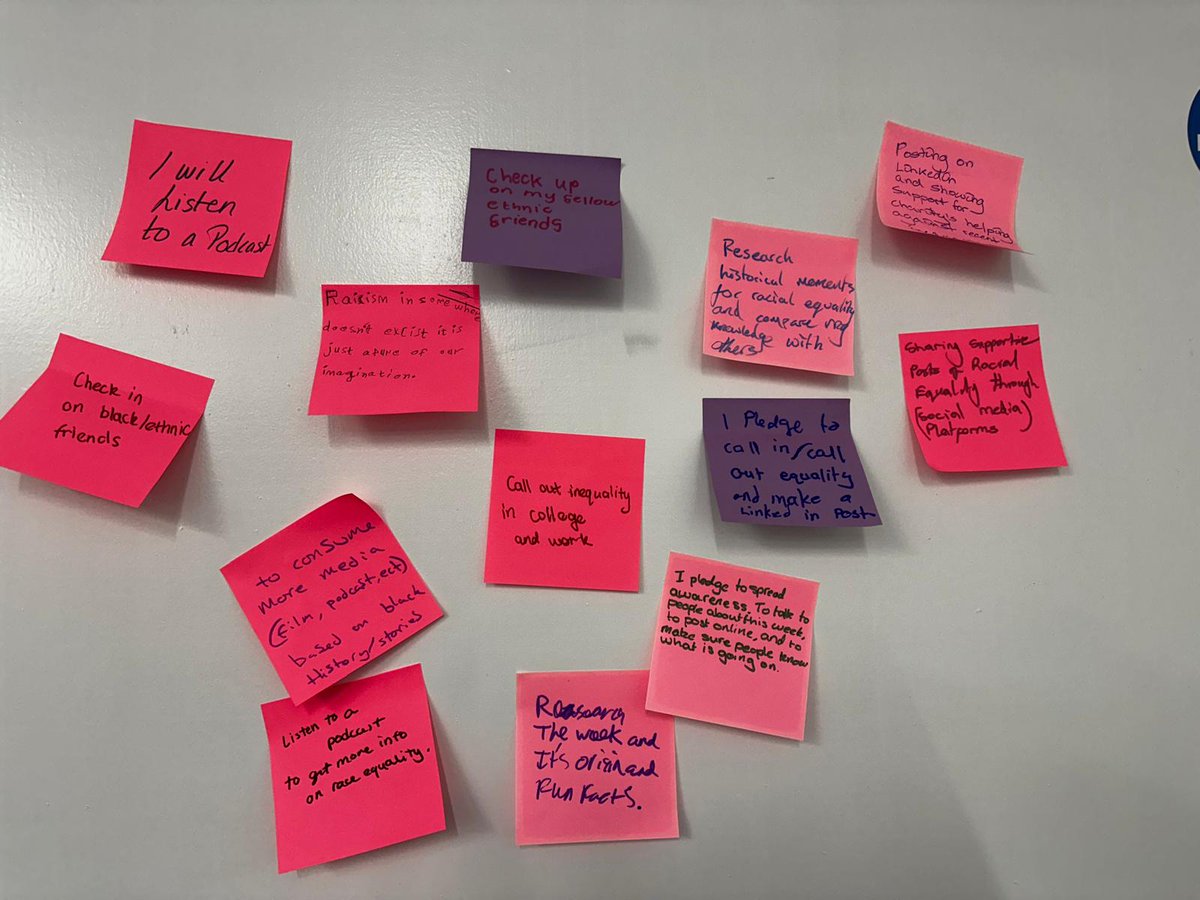 I will
Listen
to a Podcast
Check up
on my fellow
ethnic
friends
Posting on
LinkedIn
and showing
support for
charity's helping
against recent
Research
historical moments
for racial equality
and compare my
knowledge with
others
Raisism in some where
doesn't exist it is
just a pure of our
imagination.
Sharing Supportive
Posts of Racial
Equality through
(Social media)
Platforms
Check in
on black/ethnic
friends
I Pledge to
call in/call
out equality
and make a
Linked in Post
Call out inequality
in college
and work
to consume
more media
(film, podcast, ect)
based on black
History/stories
I pledge to spread
awareness. To talk to
people about this week,
to post online, and to
make sure people know
what is going on.
Listen to a
podcast
to get more info
on race equality.
Research
The week and
It's origin and
Fun Facts.